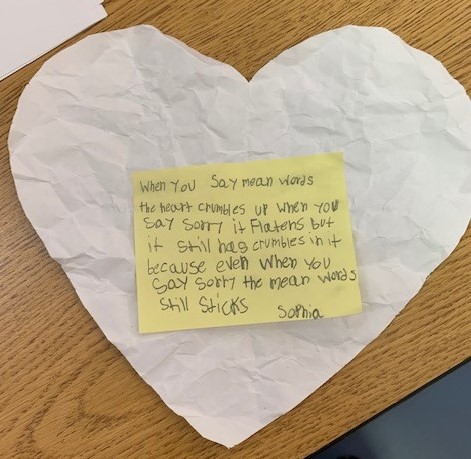 When You Say mean words
the heart crumbles up when you
Say Sorry it Flatens but
it still has crumbles in it
because even when you
Say Sorry the mean words
Still Sticks Sophia